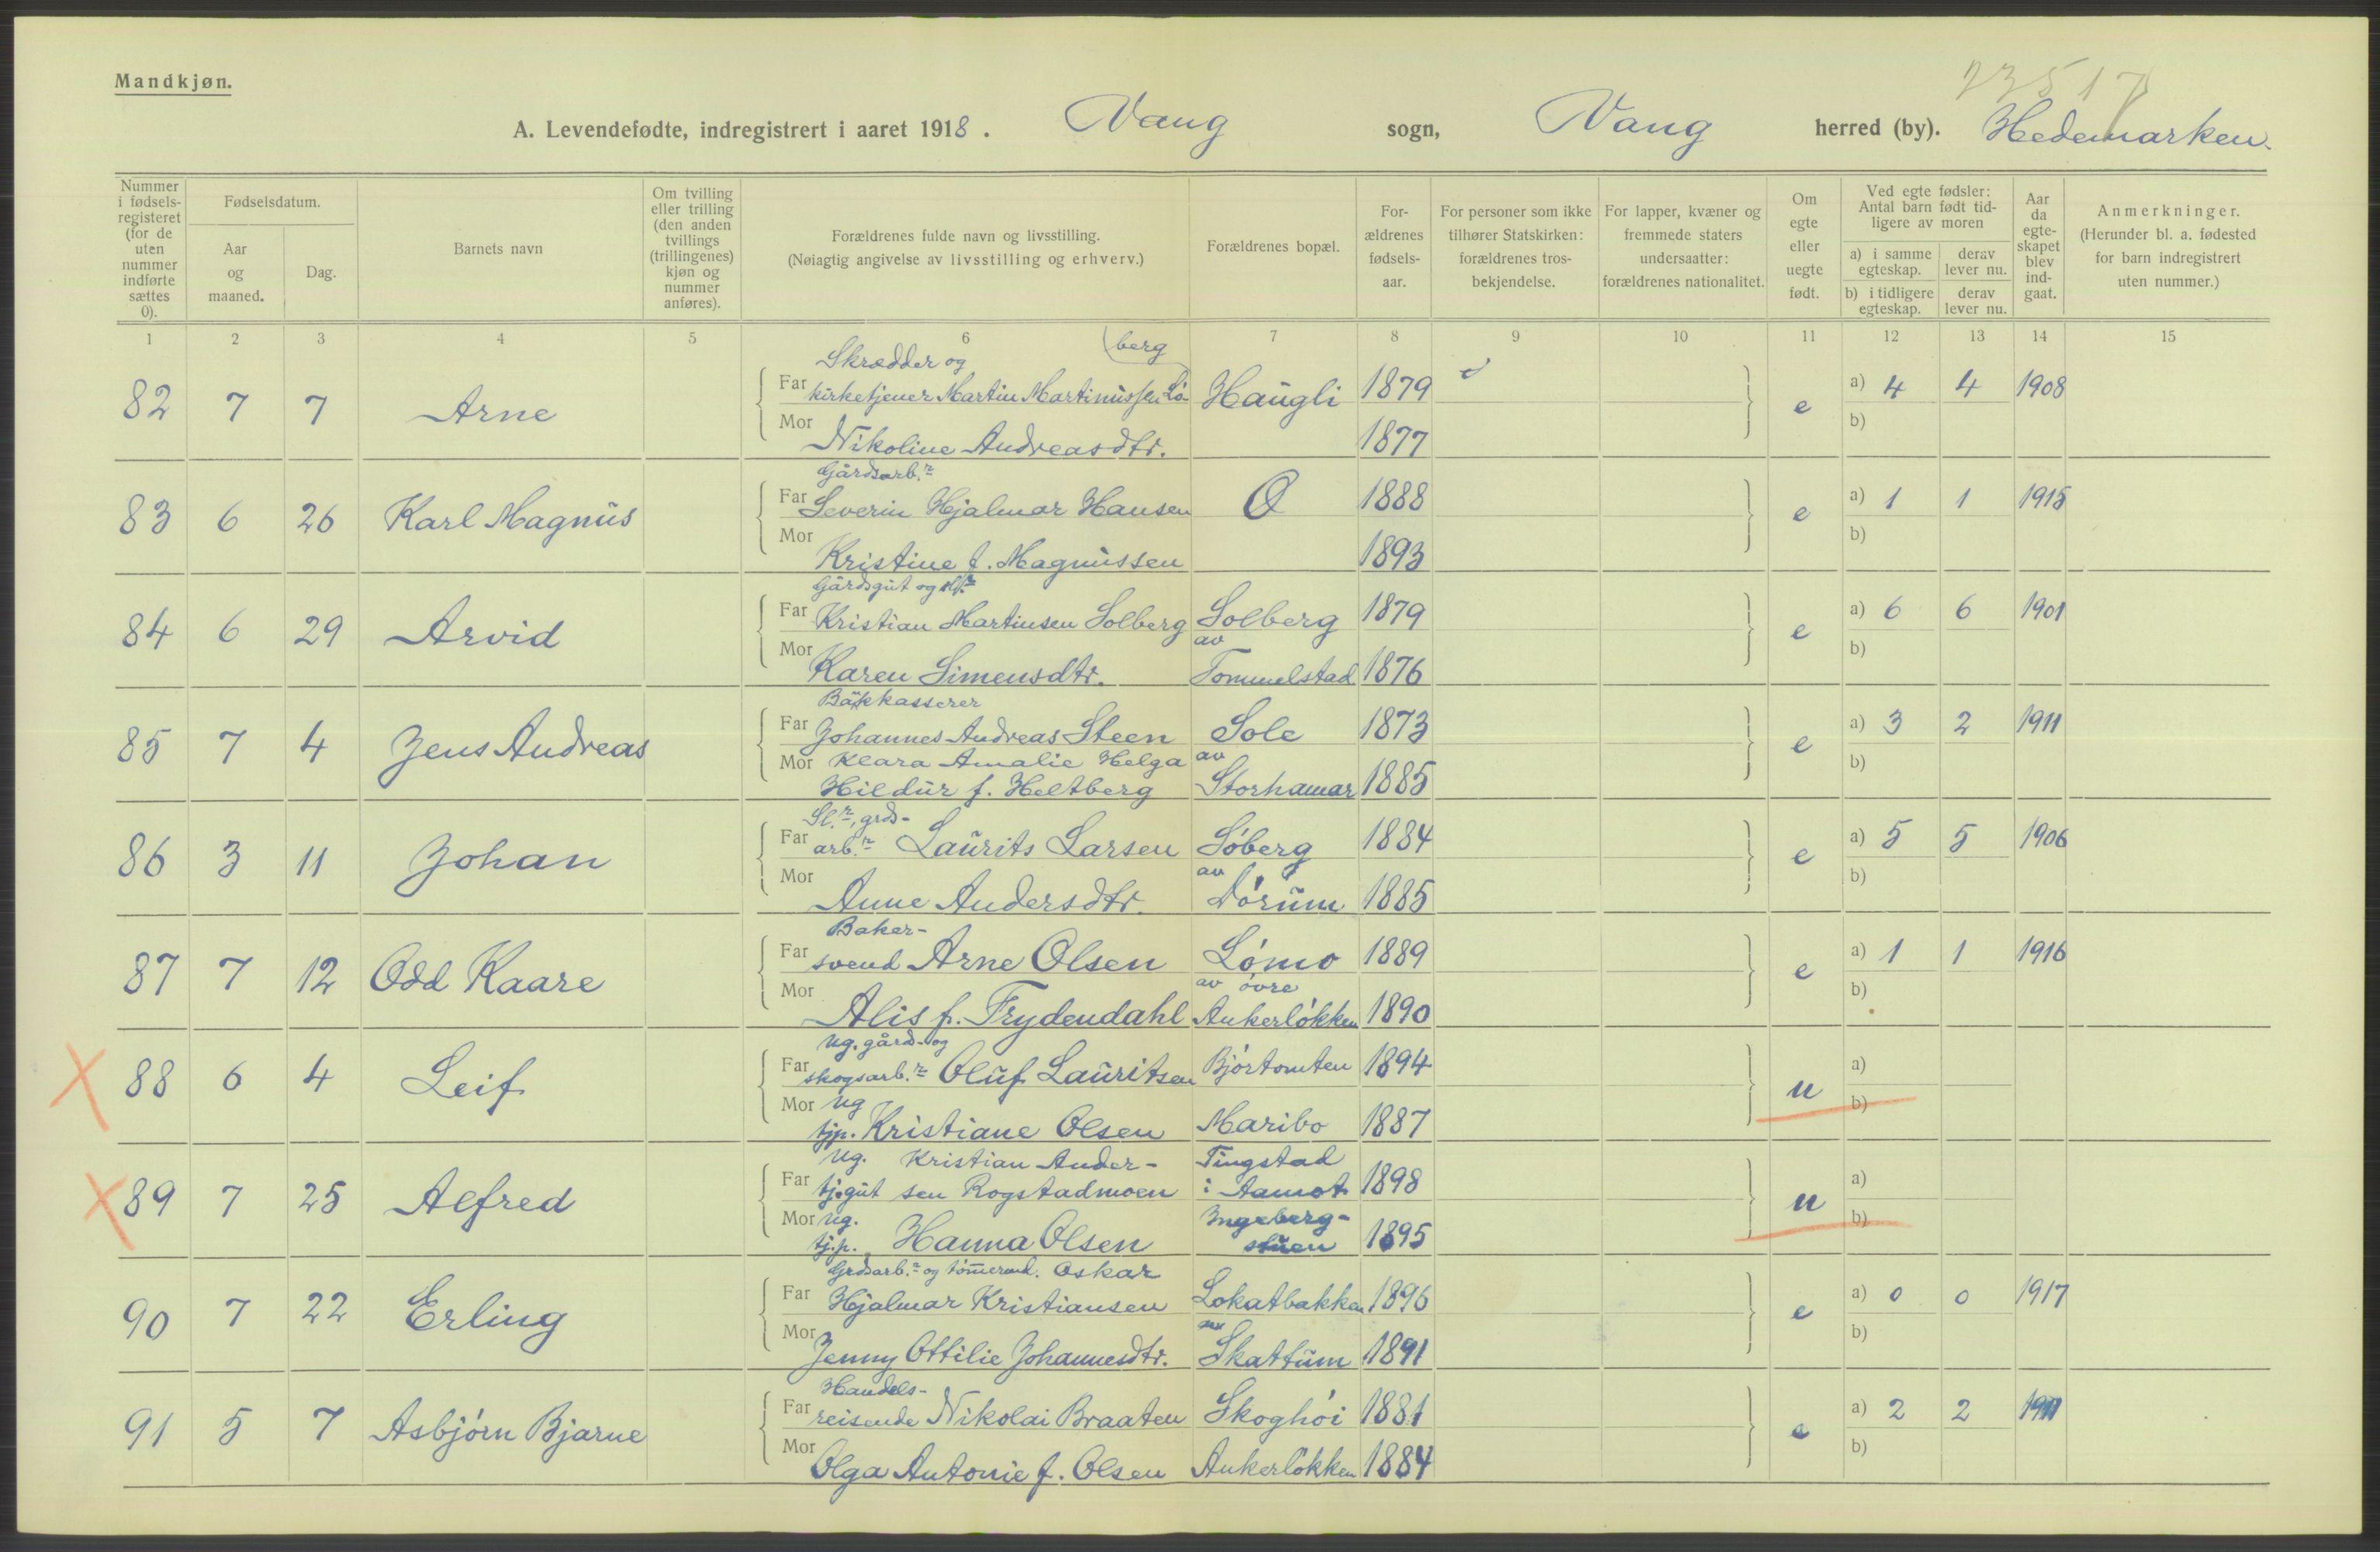 Mandkjøn.
23517
A. Levendefødte, indregistrert i aaret 1918. Vang sogn, Vang herred (by). Hedemarken.
Nummer i fødselsregisteret (for de uten nummer indførte sættes 0).
Fødselsdatum.
Aar og maaned.
Dag.
Barnets navn
Om tvilling eller trilling (den anden tvillings (trillingenes) kjøn og nummer anføres).
Forældrenes fulde navn og livsstilling.
(Nøiagtig angivelse av livsstilling og erhverv.)
Forældrenes bopæl.
Forældrenes fødselsaar.
For personer som ikke tilhører Statskirken: forældrenes trosbekjendelse.
For lapper, kvæner og fremmede staters undersaatter: forældrenes nationalitet.
Om egte eller uegte født.
Ved egte fødsler: Antal barn født tidligere av moren
a) i samme egteskap.
derav lever nu.
b) i tidligere egteskap.
derav lever nu.
Aar da egteskapet blev indgaat.
Anmerkninger.
(Herunder bl. a. fødested for barn indregistrert uten nummer.)
1 2 3 4 5 6 7 8 9 10 11 12 13 14 15
Skrædder og berg
82 7 7 Arne Far kirketjener Martin Martinussen Lö- Haugli 1879 e a) 4 4 1908
Mor Nikoline Andreasdtr. 1877 b)
Gårdsarb.r
83 6 26 Karl Magnus Far Severin Hjalmar Hansen O 1888 e a) 1 1 1915
Mor Kristine f. Magnussen 1893 b)
Gårdsgut og
84 6 29 Arvid Far Kristian Martinsen Solberg Solberg 1879 e a) 6 6 1901
Mor Karen Simensdtr. av Tommelstad 1876 b)
Båkkasserer
85 7 4 Jens Andreas Far Johannes Andreas Steen Sole 1873 e a) 3 2 1911
Mor Klara Amalie Helga av
Hildur f. Heltberg Storhamar 1885 b)
Sl.r, grds-
86 3 11 Johan Far arb.r Laurits Larsen Söberg 1884 e a) 5 5 1906
Mor Anne Andersdtr. av Dörum 1885 b)
Baker-
87 7 12 Odd Kaare Far svend Arne Olsen Lömo 1889 e a) 1 1 1916
Mor Alis f. Frydendahl av övre Ankerlökken 1890 b)
Ug. gård- og
88 6 4 Leif Far skogsarb.r Oluf Lauritsen Bjørtomten 1894 u a)
Mor Ug
tjp. Kristiane Olsen Maribo 1887 b)
Ug. Kristian Ander- Tingstad
89 7 25 Alfred Far tj.gut sen Rogstadmoen i Aamot 1898 u a)
Mor Ug. Ingeberg-
tj.p. Hanna Olsen stuen 1895 b)
Grdsarb.r og tömmermd. Oskar
90 7 22 Erling Far Hjalmar Kristiansen Lokatbakken 1896 e a) 0 0 1917
Mor Jenny Ottilie Johannesdtr. av Skattum 1891 b)
Handels-
91 5 7 Asbjörn Bjarne Far reisende Nikolai Braaten Skoghöi 1881 e a) 2 2 1911
Mor Olga Antonie f. Olsen Ankerlökken 1884 b)